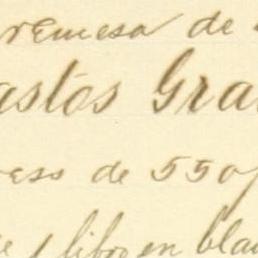 remesa de
astos Gra
ess de 550
libro en blan